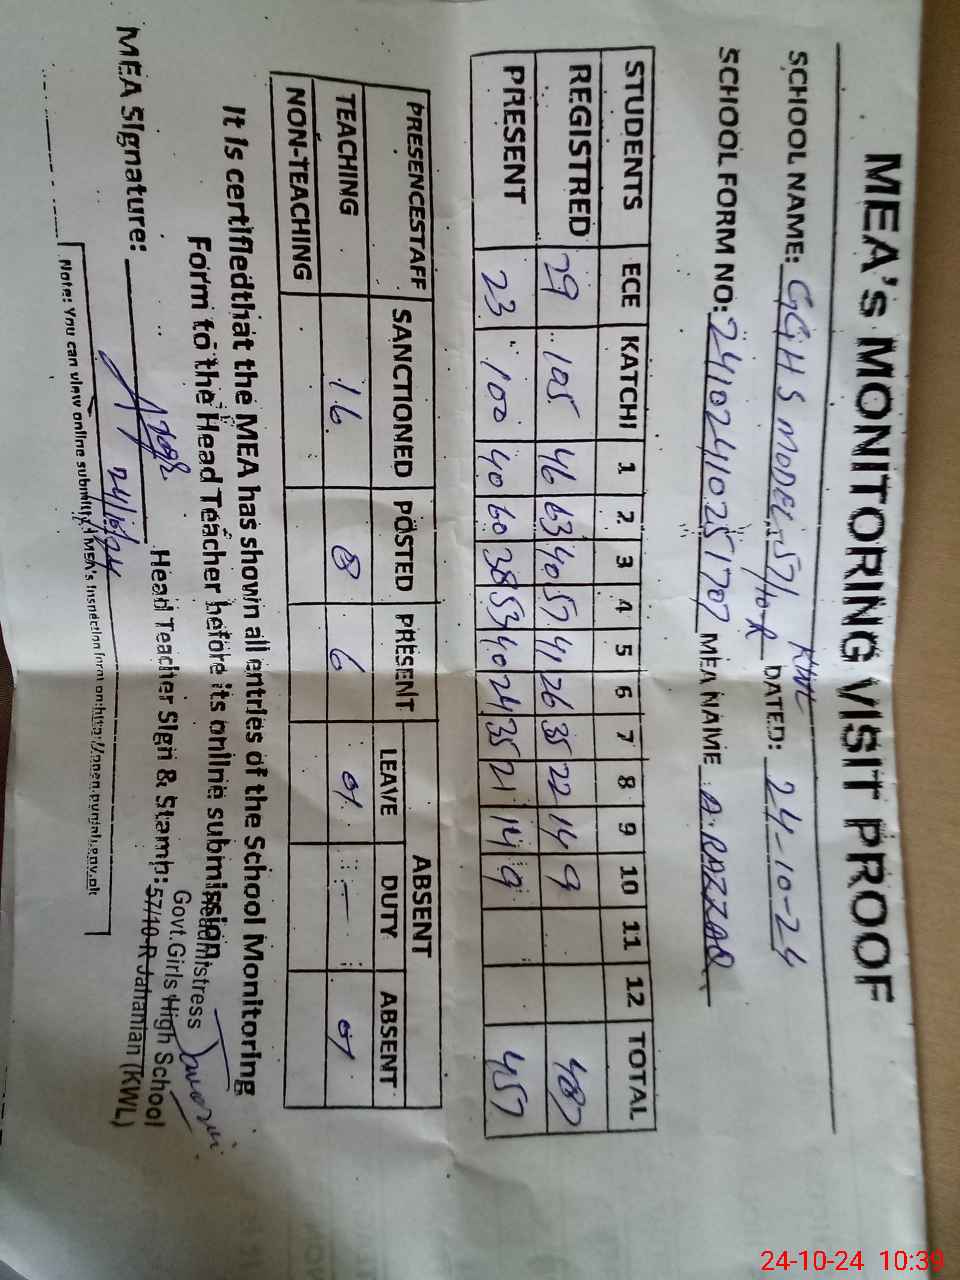 MEA's MONITORING VISIT PROOF
SCHOOL NAME: GGHS MODEL 57/10-R KWL DATED: 24-10-24
SCHOOL FORM NO: 24102410251707 MEA NAME A. RAZZAQ
STUDENTS ECE KATCHI 1 2 3 4 5 6 7 8 9 10 11 12 TOTAL
REGISTRED 29 105 46 63 40 57 41 26 35 22 14 9 487
PRESENT 23 100 40 60 38 53 40 24 35 21 14 9 457
PRESENCESTAFF SANCTIONED POSTED PRESENT ABSENT
LEAVE DUTY ABSENT
TEACHING 16 8 6 01 - 01
NON-TEACHING
It is certifiedthat the MEA has shown all entries of the School Monitoring
Form to the Head Teacher before its online submission
Headmistress
Govt.Girls High School
57/10-R Jahanian (KWL)
MEA Signature: Head Teacher Sign & Stamp:
24/10/24
Note: You can view online submitted MEA's Inspection form on:http://open.punjab.gov.pk
24-10-24 10:39